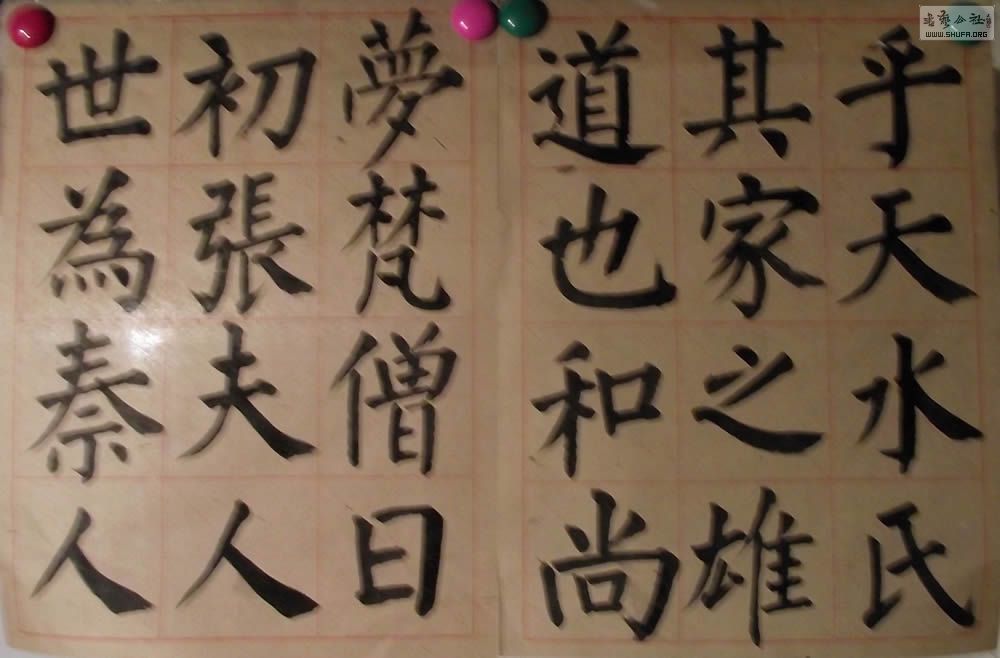 乎天水氏
其家之雄
道也和尚
夢梵僧曰
初張夫人
世為秦人
書藝公社
WWW.SHUFA.ORG